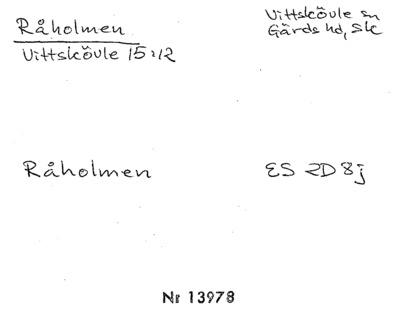 Råholmen
Vittskövle 15:12
Vittskövle sn
Gärds hd, Sk
Råholmen
ES 2D 8j
Nr 13978